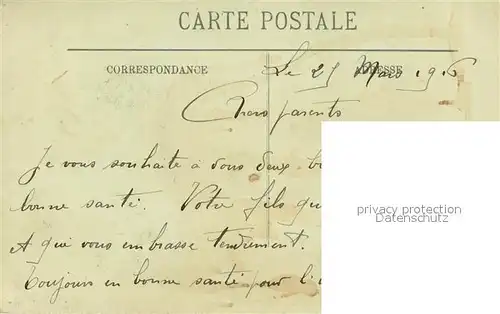 CARTE POSTALE
CORRESPONDANCE
ADRESSE
Le 25 Mars 1916
Chers parents
Je vous souhaite à vous deux
bonne santé. Votre fils qu
et qui vous embrasse tendrement.
Toujours en bonne santé pour l'i
privacy protection
Datenschutz